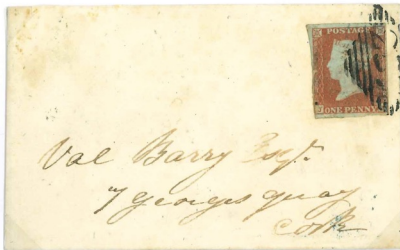 POSTAGE
ONE PENNY
Val Barry Esqr.
7 Georges quay
Cork